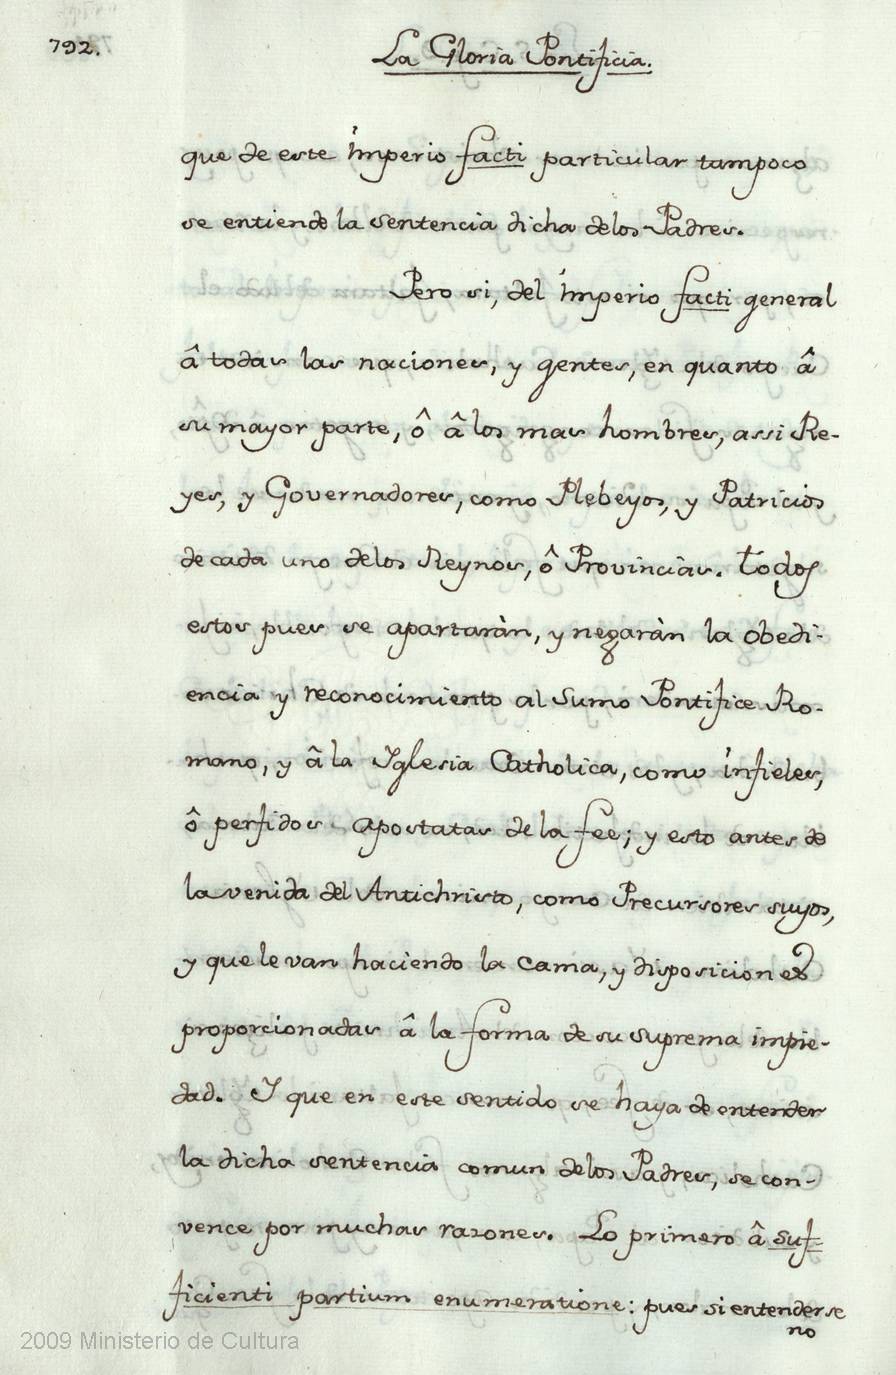 792.
La Gloria Pontificia.
que de este imperio facti particular tampoco
se entiende la sentencia dicha delos Padres.
Pero si, del imperio facti general
â todas las naciones, y gentes, en quanto â
su mayor parte, ô â los mas hombres, assi Re-
yes, y Governadores, como Plebeyos, y Patricios
de cada uno delos Reynos, ô Provincias. todos
estos pues se apartaràn, y negaràn la obedi-
encia y reconocimiento al Sumo Pontifice Ro-
mano, y â la Iglesia Catholica, como infieles,
ô perfidos apostatas de la fee; y esto antes de
la venida del Antichristo, como Precursores suyos,
y que le van haciendo la cama, y disposiciones
proporcionadas â la forma de su suprema impie-
dad. I que en este sentido se haya de entender
la dicha sentencia comun delos Padres, se con-
vence por muchas razones. Lo primero â suf-
ficienti partium enumeratione: pues si entenderse
no
2009 Ministerio de Cultura